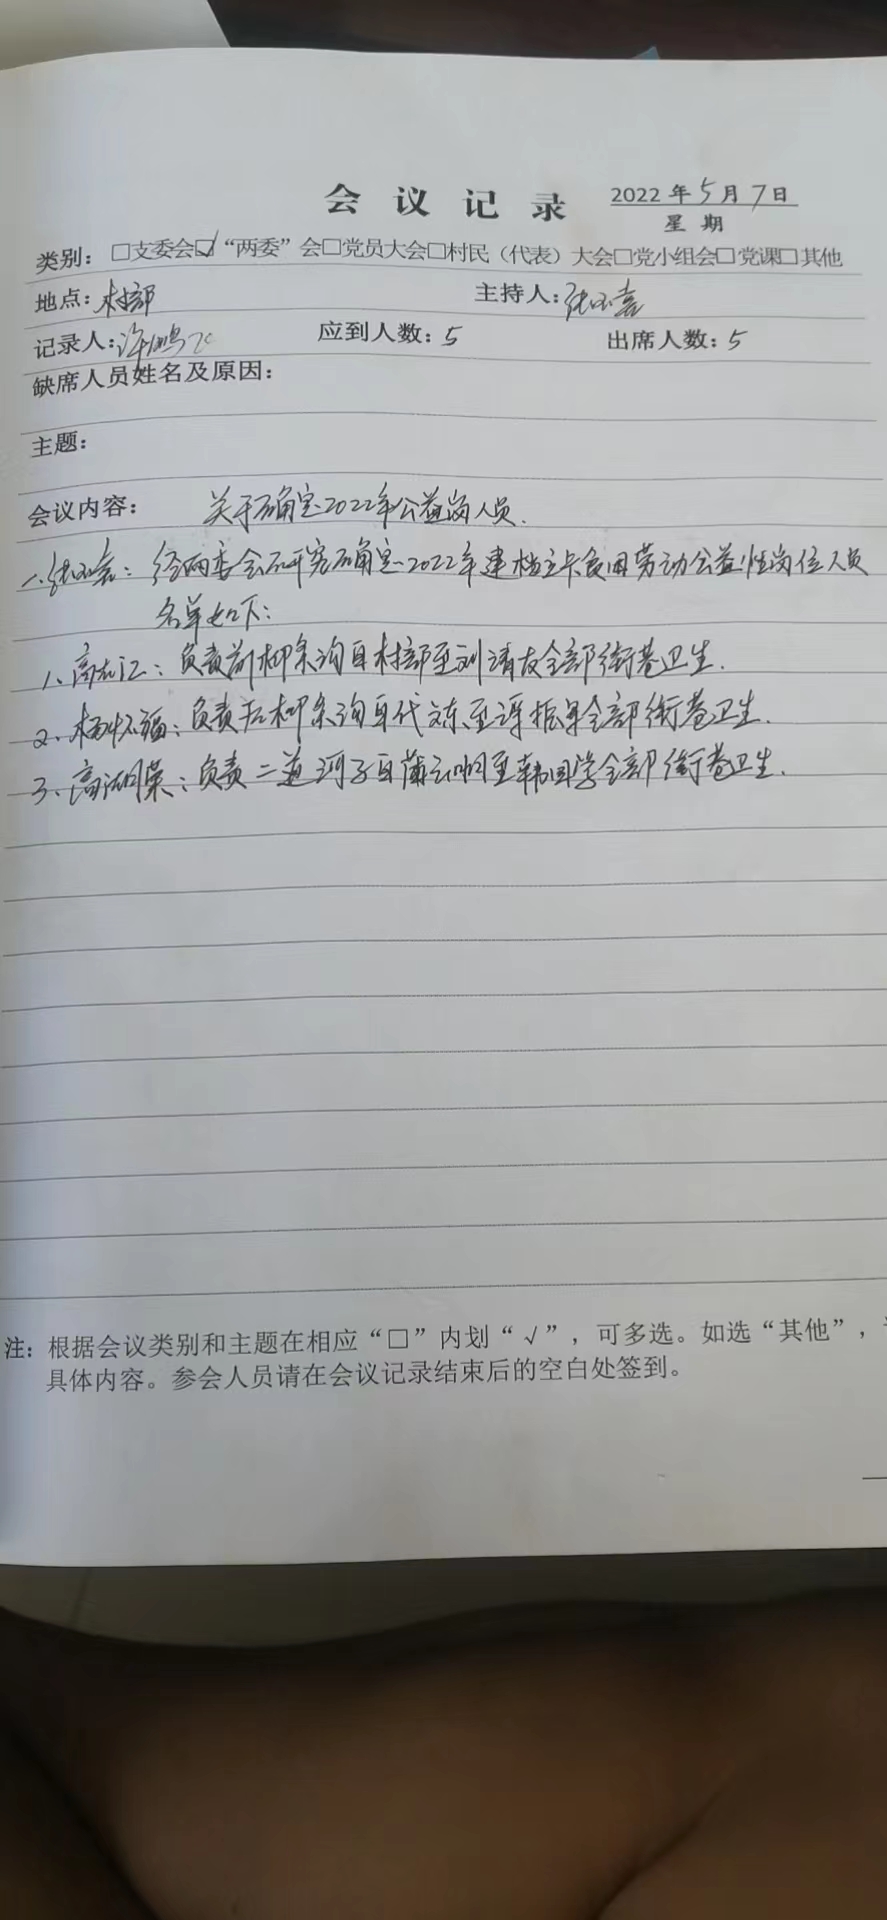 会议记录 2022年5月7日
星期
类别：□支委会☑“两委”会□党员大会□村民（代表）大会□党小组会□党课□其他
地点：村部 主持人：张玉喜
记录人：许鹏飞 应到人数：5 出席人数：5
缺席人员姓名及原因：
主题：
会议内容： 关于确定2022年公益岗人员.
一、张玉喜：经两委会研究确定2022年建档立卡贫困劳动公益性岗位人员
名单如下：
1、高志江：负责前柳条沟自村部至刘清友全部街巷卫生.
2、杨怀福：负责后柳条沟自代文东至谭振军全部街巷卫生.
3、高洪荣：负责二道河子自蔺云明至韩国学全部街巷卫生.
注：根据会议类别和主题在相应“□”内划“√”，可多选。如选“其他”，
具体内容。参会人员请在会议记录结束后的空白处签到。